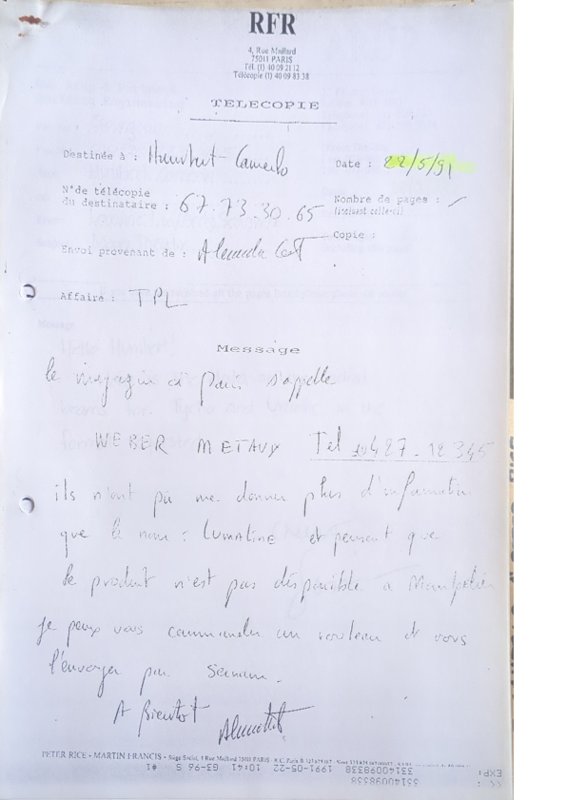 RFR
4, Rue Maillard
75011 PARIS
Tél. (1) 40 09 21 12
Télécopie (1) 40 09 83 38
TELECOPIE
Destinée à : Humbert-Camerlo
Date : 22/5/91
N°de télécopie
du destinataire : 67.73.30.65
Nombre de pages :
(incluant celle-ci)
Copie :
Envoi provenant de :
Affaire : TPL
Message
le magazin à Paris s'appelle
WEBER METAUX Tel
ils n'ont pu me donner plus d'information
que le nom : LUMALINE et pensent que
le produit n'est pas disponible a Montpelier
je peux vous commander un rouleau et vous
l'envoyer par Sernam.
A Bientot
PETER RICE - MARTIN FRANCIS - Siège Social, 4 Rue Maillard 75011 PARIS
EXP: 33140098338 1991-05-22 10:41 G3-96 S #1
33140098338